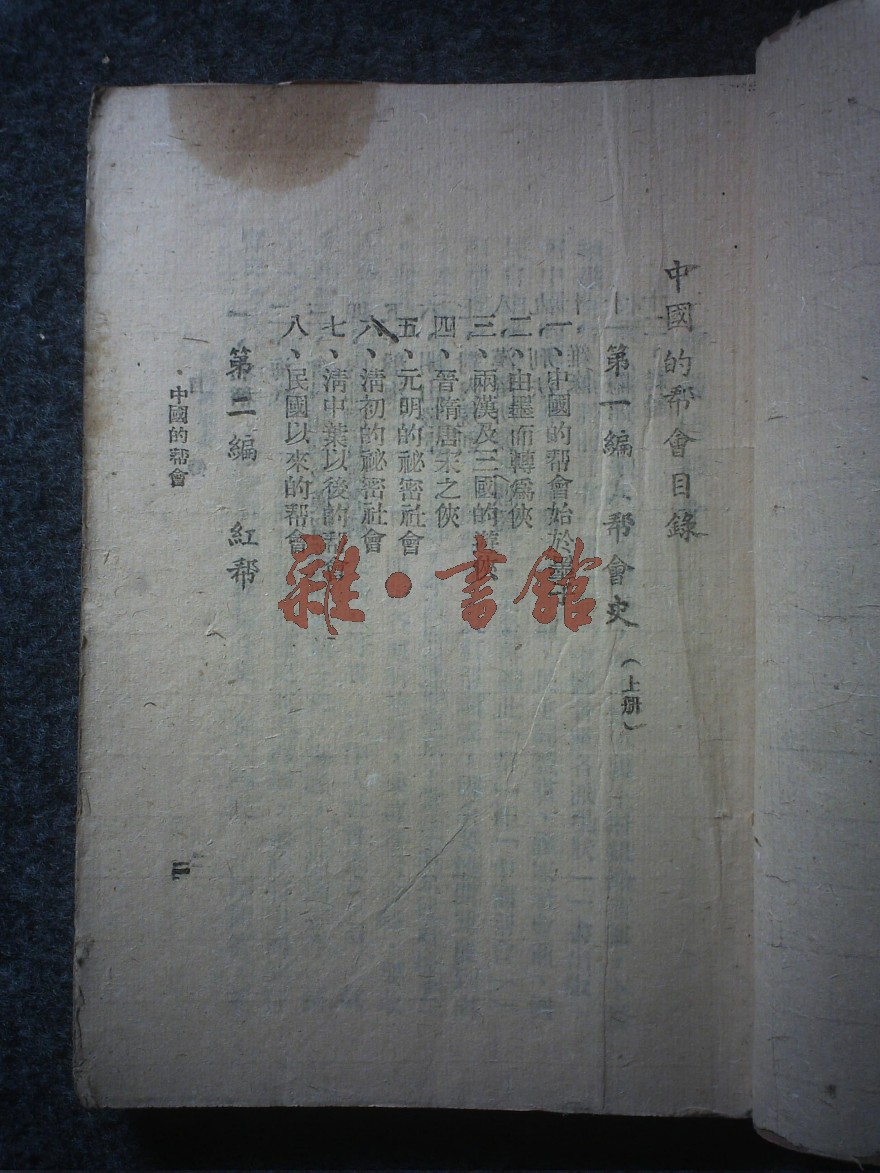 中國的帮會目錄
第一編 帮會史 (上册)
一、中國的帮會始於墨子
二、由墨而轉爲俠
三、兩漢及三國的游俠
四、晉隋唐宋之俠
五、元明的祕密社會
六、淸初的祕密社會
七、淸中葉以後的帮會
八、民國以來的帮會
第二編 紅帮
中國的帮會
雜·書館